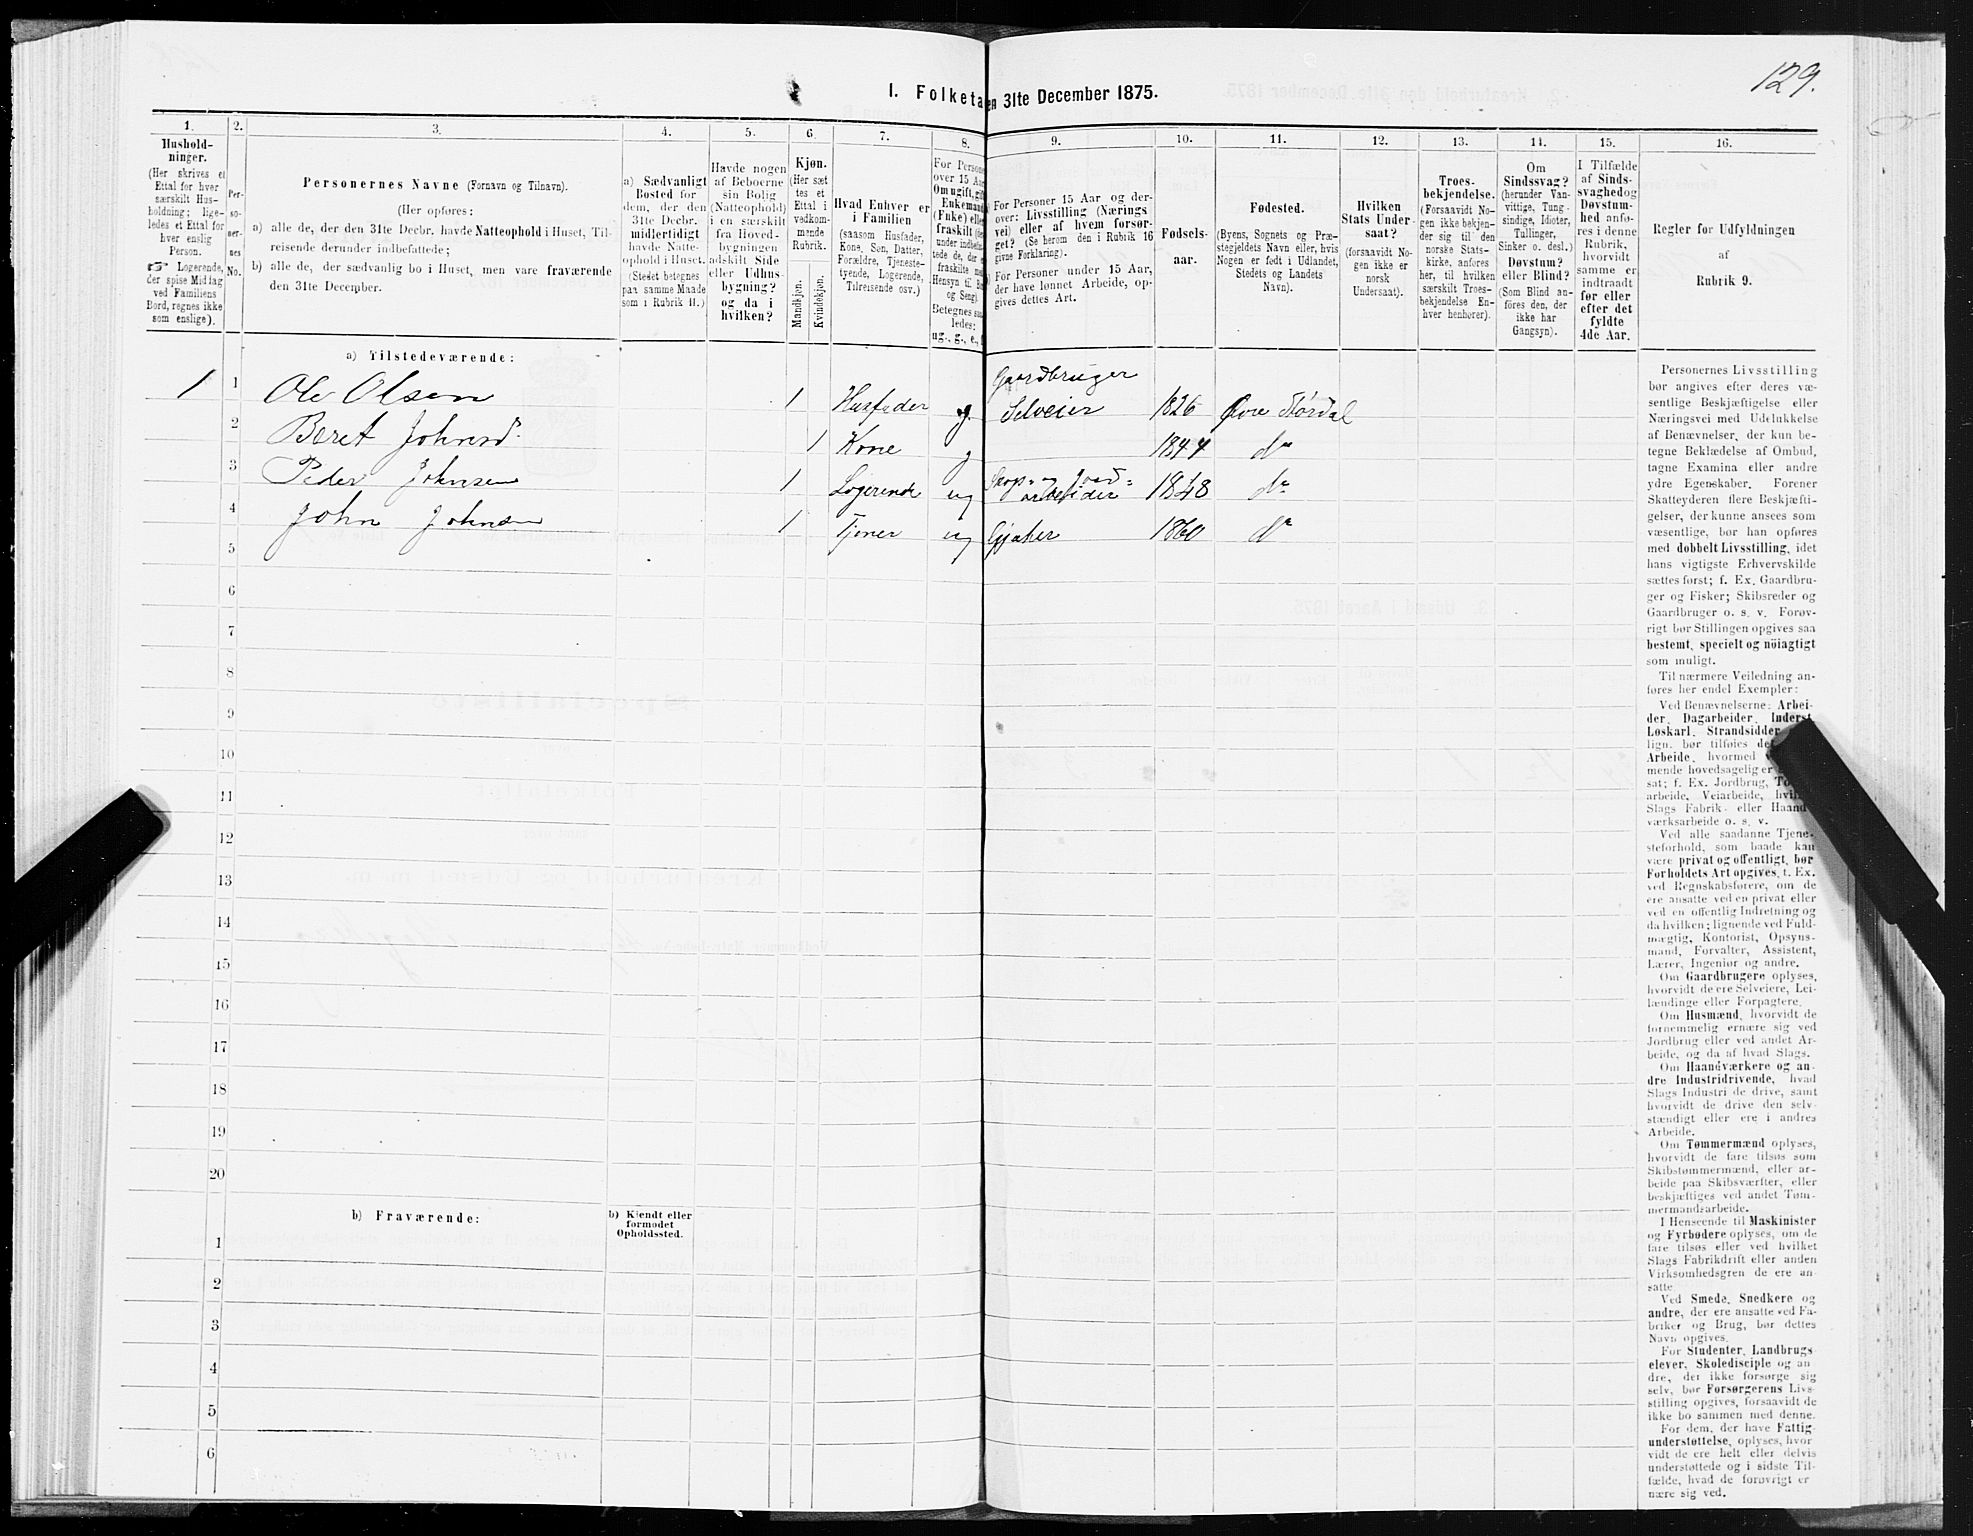 129.
I. Folketa
en 31te December 1875.
1. 2. 3. 4. 5. 6. 7. 8. 9. 10. 11. 12. 13. 14. 15. 16.
Hushold-
ninger.
(Her skrives et
Ettal for hver
særskilt Hus-
holdning; lige-
ledes et Ettal for
hver enslig
Person.
Logerende,
der spise Middag
ved Familiens
Bord, regnes ikke
som enslige).
Per-
so-
ner-
nes
No.
Personernes Navne (Fornavn og Tilnavn).
(Her opføres:
a) alle de, der den 31te Decbr. havde Natteophold i Huset, Til-
reisende derunder indbefattede;
b) alle de, der sædvanlig bo i Huset, men vare fraværende
den 31te December.
a) Sædvanligt
Bosted for
dem, der den
31te Decbr.
midlertidigt
havde Natte-
ophold i Huset.
(Stedet betegnes
paa samme Maade
som i Rubrik 11.)
Havde nogen
af Beboerne
sin Bolig
(Natteophold)
i en særskilt
fra Hoved-
bygningen
adskilt Side
eller Udhus-
bygning?
og da i
hvilken?
Kjøn.
(Her sæt
tes et
Ettal i
vedkom-
mende
Rubrik.
Mandkjøn.
Kvindekjøn.
Hvad Enhver er
i Familien
(saasom Husfader,
Kone, Søn, Datter,
Forældre, Tjeneste-
tyende, Logerende,
Tilreisende osv.)
For Persone
over 15 Aar
Om ugift, gift
Enkemand
(Enke) elle
fraskilt
under indbefat-
tede de, der e
fraskilte me
Hensyn til B
og Seng).
Betegnes saa
ledes:
ug., g., e., f
For Personer 15 Aar og der-
over: Livsstilling (Nærings
vei) eller af hvem forsør-
get? (Se herom den i Rubrik 16
givne Forklaring).
For Personer under 15 Aar,
der have lønnet Arbeide, op-
gives dettes Art.
Fødsels-
aar.
Fødested.
(Byens, Sognets og Præ-
stegjeldets Navn eller, hvis
Nogen er født i Udlandet,
Stedets og Landets
Navn).
Hvilken
Stats Under-
saat?
(forsaavidt No-
gen ikke er
norsk
Undersaat).
Troes-
bekjendelse.
(Forsaavidt No-
gen ikke bekjen-
der sig til den
norske Stats-
kirke, anføres
her, til hvilken
særskilt Troes-
bekjendelse En-
hver henhører).
Om
Sindssvag?
(herunder Van-
vittige, Tung-
sindige, Idioter,
Tullinger,
Sinker o. desl.)
Døvstum?
eller Blind?
(Som Blind an-
føres den, der
ikke har
Gangsyn).
I Tilfælde
af Sinds-
svaghed og
Døvstum-
hed anfø-
res i denne
Rubrik,
hvorvidt
samme er
indtraadt
før eller
efter det
fyldte
4de Aar.
Regler for Udfyldningen
af
Rubrik 9.
a) Tilstedeværende:
1 1 Ole Olsen 1 Husfader g. Gaardbruger
Selveier 1826 Øvre Størdal
2 Beret Johnsd. 1 Kone g 1844 do
3 Peder Johnsen 1 Logerende ug Skog- og Jord-
arbeider 1848 do
4 John Johnsen 1 Tjener ug Gjæter 1860 do
5
6
7
8
9
10
11
12
13
14
15
16
17
18
19
20
b) Fraværende:
b) Kjendt eller
formodet
Opholdssted.
1
2
3
4
5
6
Personernes Livsstilling
bør angives efter deres væ-
sentlige Beskjæftigelse eller
Næringsvei med Udelukkelse
af Benævnelser, der kun be-
tegne Beklædelse af Ombud,
tagne Examina eller andre
ydre Egenskaber. Forener
Skatteyderen flere Beskjæfti-
gelser, der kunne ansees som
væsentlige, bør han opføres
med dobbelt Livsstilling, idet
hans vigtigste Erhvervskilde
sættes først; f. Ex. Gaardbru-
ger og Fisker; Skibsreder og
Gaardbruger o. s. v. Forøv-
rigt bør Stillingen opgives saa
bestemt, specielt og nöiagtigt
som muligt.
Til nærmere Veiledning an-
føres her endel Exempler:
Ved Benævnelserne: Arbei-
der, Dagarbeider, Inderst,
Løskarl, Strandsidder
lign. bør tilføies de
Arbeide, hvormed
mende hovedsagelig er
sat; f. Ex. Jordbrug, To
arbeide, Veiarbeide, hvil
Slags Fabrik- eller Haand-
værksarbeide o. s. v.
Ved alle saadanne Tjene-
steforhold, som baade kan
være privat og offentligt, bør
Forholdets Art opgives, t. Ex.
ved Regnskabsførere, om de
ere ansatte ved en privat eller
ved en offentlig Indretning og
da hvilken; lignende ved Fuld-
mægtig, Kontorist, Opsyns-
mand, Forvalter, Assistent,
Lærer, Ingeniør og andre.
Om Gaardbrugere oplyses,
hvorvidt de ere Selveiere, Lei-
lændinge eller Forpagtere.
Om Husmænd, hvorvidt de
fornemmelig ernære sig ved
Jordbrug eller ved andet Ar-
beide, og da af hvad Slags.
Om Haandværkere og an-
dre Industridrivende, hvad
Slags Industri de drive, samt
hvorvidt de drive den selv-
stændigt eller ere i andres
Arbeide.
Om Tømmermænd oplyses,
hvorvidt de fare tilsøs som
Skibstømmermænd, eller ar-
beide paa Skibsværfter, eller
beskjæftiges ved andet Tøm-
mermandsarbeide.
I Henseende til Maskinister
og Fyrbødere oplyses, om de
fare tilsøs eller ved hvilket
Slags Fabrikdrift eller anden
Virksomhedsgren de ere an-
satte.
Ved Smede, Snedkere og
andre, der ere ansatte ved Fa-
briker og Brug, bør dettes
Navn opgives.
For Studenter, Landbrugs-
elever, Skoledisciple og an
dre, der ikke forsørge sig
selv, bør Forsørgerens Livs-
stilling opgives, forsaavidt de
ikke bo sammen med denne.
For dem, der have Fattig-
understøttelse, oplyses, hvor
vidt de ere helt eller delvis
understøttede og i sidste Til-
fælde, hvad de forøvrigt er
nære sig ved.